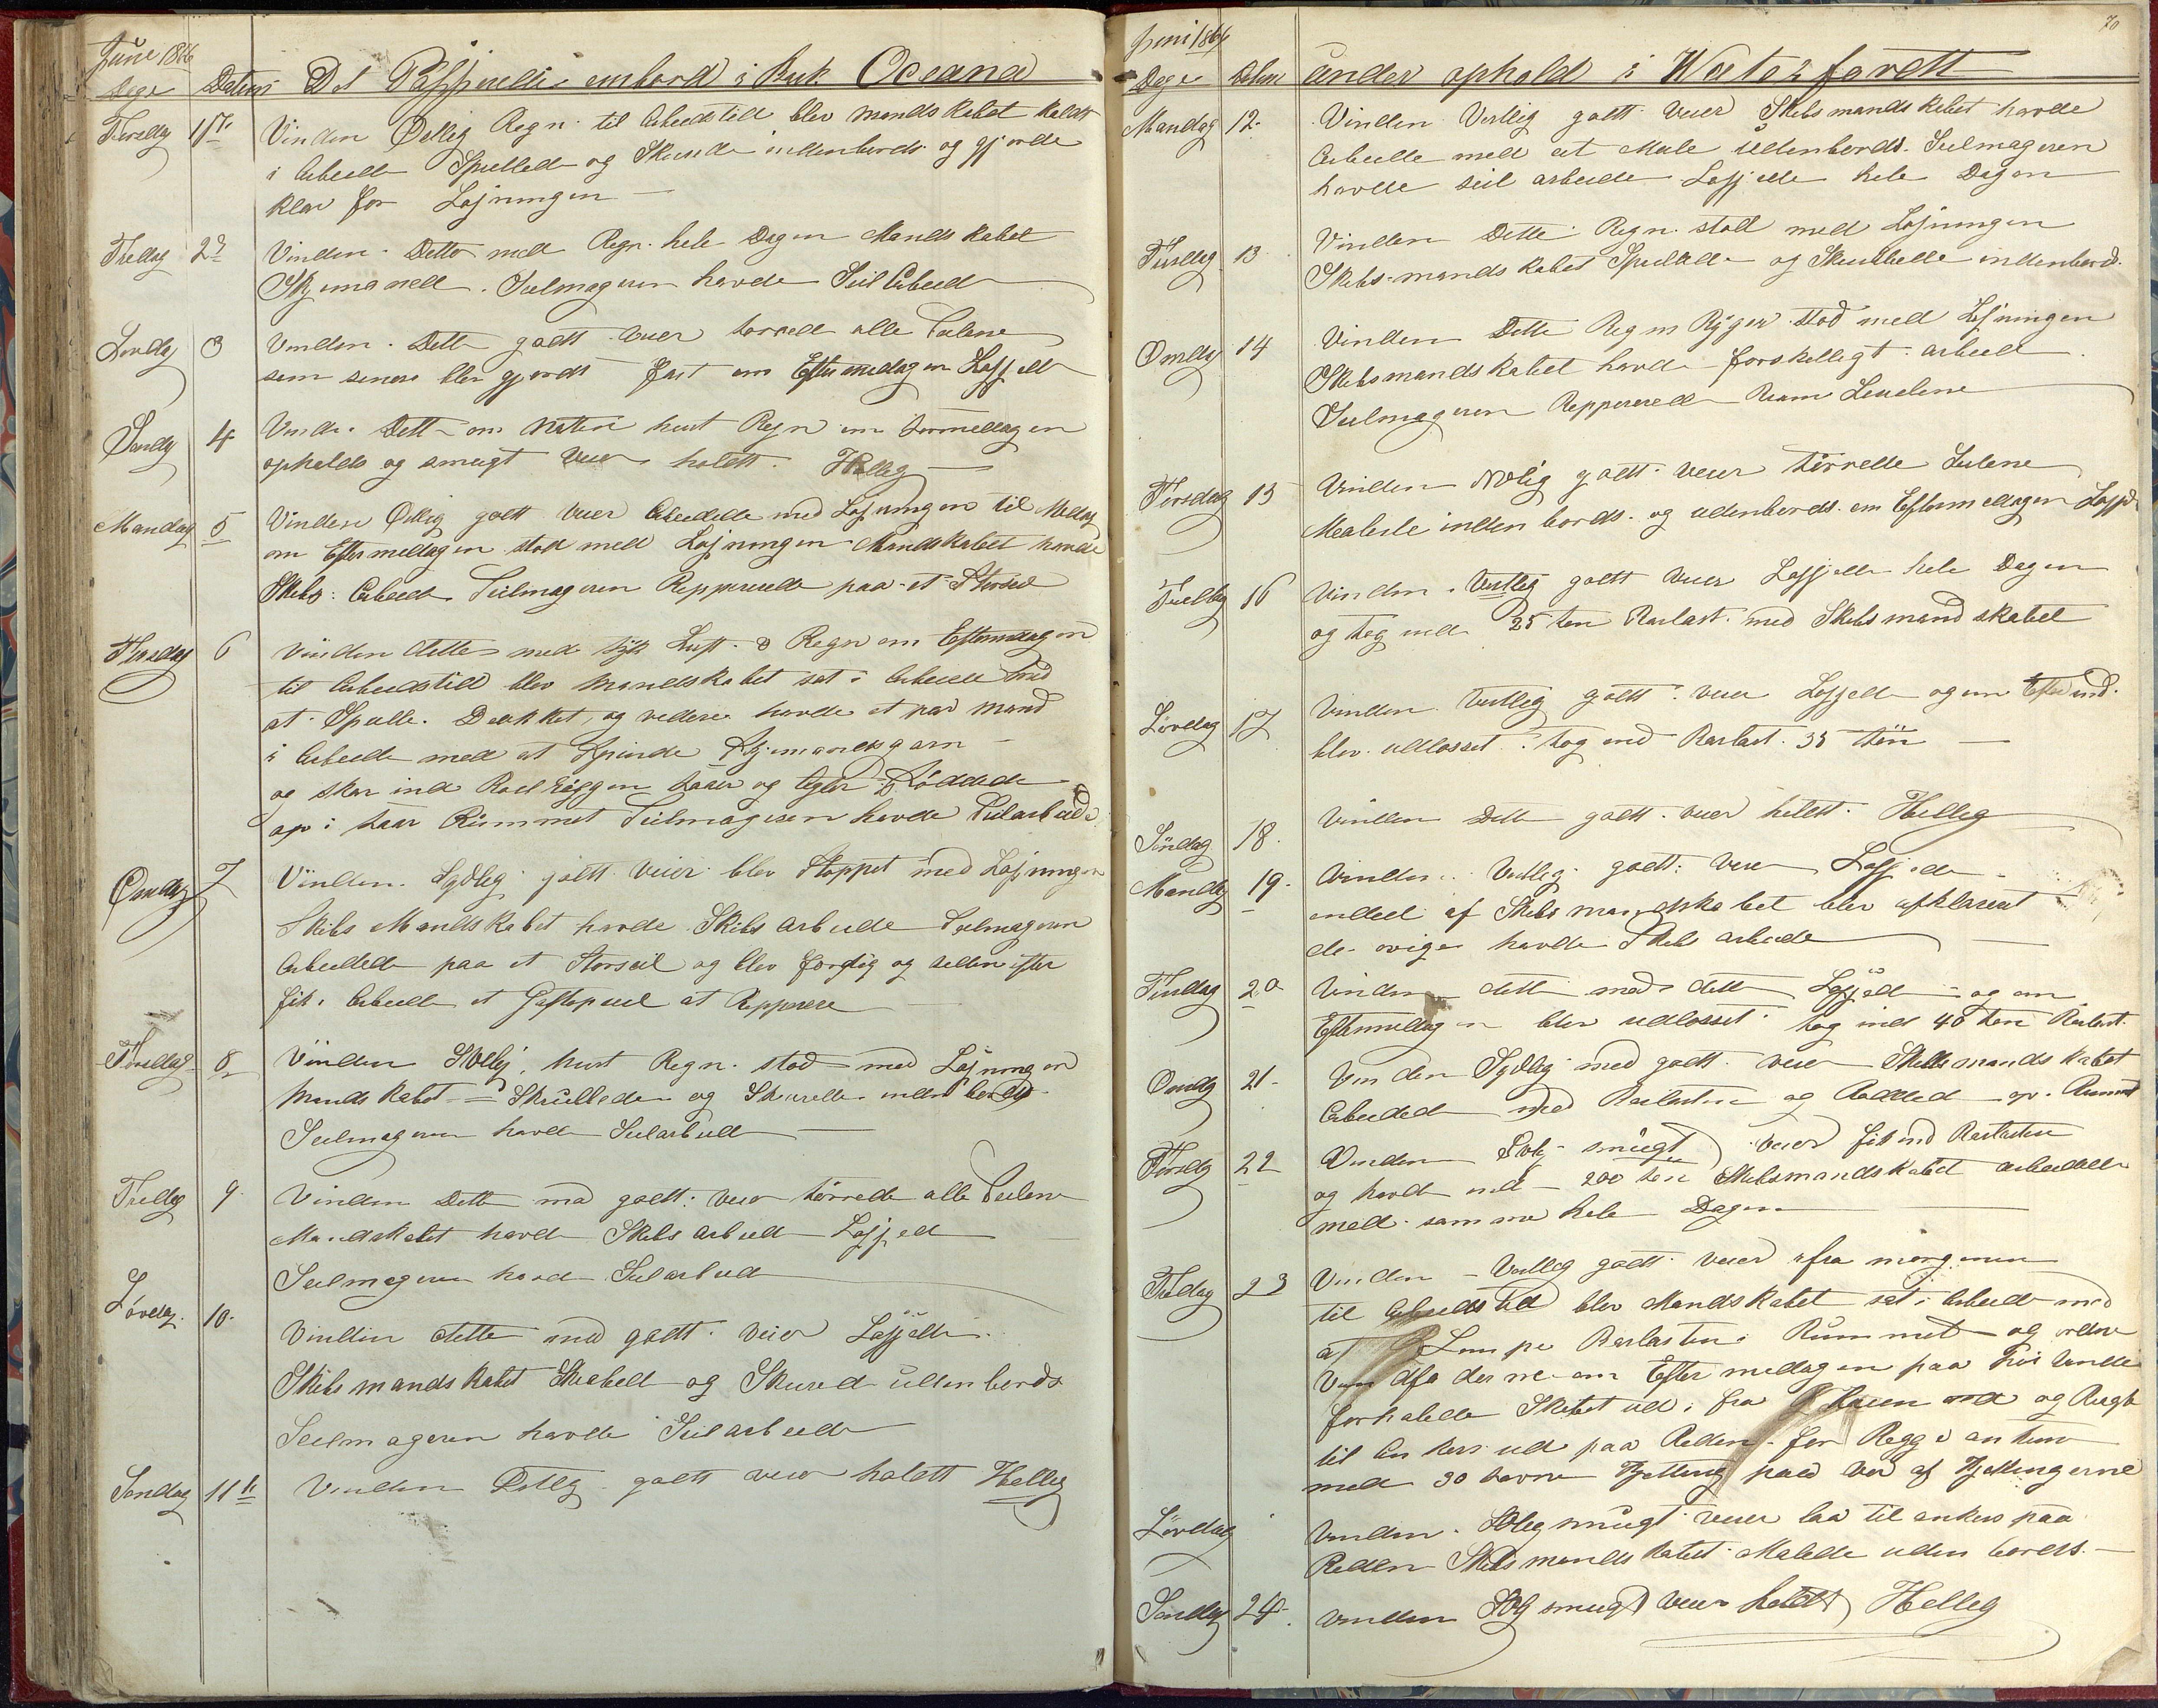 June 1866
Dage Datum Det Passerede ombord i Bark Oceana
Torsdag 1ste Vinden Østlig Regn til Arbeidstid blev mandskabet kaldt
i Arbeide Spullede og Skurede indenbords og gjorde
klar for Losningen
Fredag 2d Vinden Detto med Regn hele Dagen Mandskabet
Skjemaned. Seilmageren havde Seil Arbeid
Lørdag 3 Vinden Dette godt Veier tørrede alle Seilene
som senere blev gjordt fast om Eftermedagen Lossede
Søndag 4 Vinden Dette om Natten hvet Regn om formedagen
opholds og smugt Veier holdt Hellig
Mandag 5 Vinden Østlig godt Veier Arbeidede med Losningen til Medag
om Eftermedagen stod med Losningen Mandskabet havde
Skibs Arbeid Seilmageren Repperede paa et Storseil
Tirsdag 6 Vinden dette med tyk Luft & Regn om Eftermedagen
til Arbeidstid blev Mandskabet sat i Arbeide med
at Spulle Dækket, og videre havde et par mand
i Arbeide med at Spinde Skjemandsgarn
og skar ind
op i Rummet Seilmageren havde Seilarbeide
Onsdag 7 Vinden Sydlig godt Veier blev Stoppet med Losningen
Skibs Mandskabet havde Skibs Arbeide Seilmageren
Arbeidede paa et Storseil og blev færdig og siden efter
fik i Arbeide et at Repperere
Torsdag 8 Vinden SVelig, hvet Regn stod med Losningen
Mandskabet Skrubbede og Skurede inden bords
Seilmageren havde Seilarbeid
Fredag 9 Vinden Dette med godt Veier tørrede alle Seilene
Mandskabet havde Skibs Arbeid Lossed
Seilmageren havde Seilarbeid
Lørdag 10 Vinden dette med godt Veier Lossede
Skibs mandskabet Skrabed og Skured udenbords
Seilmageren havde Seilarbeide
Søndag 11te Vinden Østlig godt veier holdtt Hellig
Juni 1866 70
Dage Datum under ophold i Waterfordt
Mandag 12 Vinden Vestlig godt Veier Skibsmandskabet havde
Arbeide med at Male Udenbords. Seilmageren
havde seil arbeide Lossede hele Dagen
Tirsdag 13 Vinden Dette Regn stod med Losningen
Skibs-mandskabet Spullede og Skrubbede indenbord
Onsdag 14 Vinden Dette Regn Byger stod med Losningen
Skibsmandskabet havde forskelligt arbeid
Seilmageren Reppererede
Torsdag 15 Vinden NVlig godt veier tørrede Seilene
Malede inden bords og udenbords om Eftermedagen Lossed
Fredag 16 Vinden Vestlig godt Veier Lossede hele Dagen
og tog ind 25 ton Barlast med Skibsmandskabet
Lørdag 17 Vinden Vestlig godt veier Lossede og om Eftermd.
blev udlosset tog ind Barlast 35 ton
Søndag 18 Vinden Dette godt veier holdtt Hellig
Mandag 19 Vinden Vestlig godt Veier Lossede
endeel af Skibs mandskabet blev afklareret
de øvrige havde Skibs arbeide
Tirsdag 20 Vinden dette med dette Lossede og om
Eftermedagen blev udlosset tog ind 40 ton Barlast
Onsdag 21 Vinden Sydlig med godt veier Skibsmandskabet
Arbeided med Barlasten og op Rummet
Torsdag 22 Vinden SVlig smugt veier fik ind Barlasten
og havde ind 200 ton Skibsmandskabet arbeidede
med samme hele Dagen
Fredag 23 Vinden Vestlig godt veier fra morgenen
til Arbeids tid blev Mandskabet sat i Arbeide med
at Lempe Barlasten i Rummet og ordne
om Eftermedagen paa høi Vande
forhalede Skibet ud fra
til Ankers ud paa Reden for
med 30 favne Kjetting paa ver af Kjettingerne
Lørdag Vinden SVlig smugt veier laa til ankers paa
Reden Skibsmandskabet Malede uden bords.
Søndag 24 Vinden SVlg smugt Veier holdt Hellig